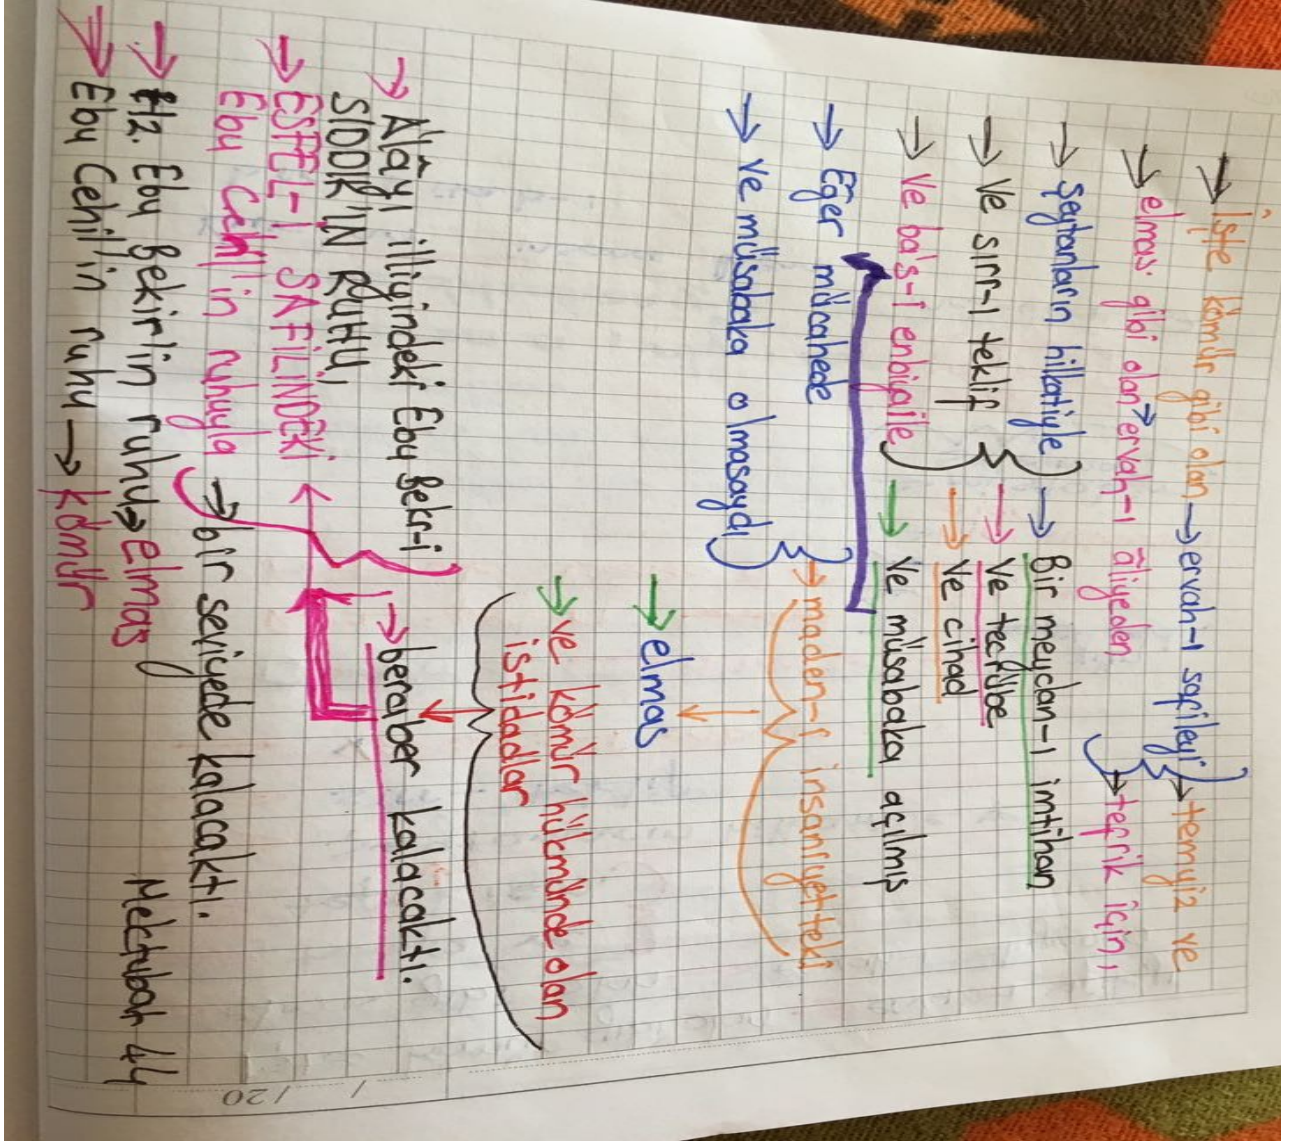 → İşte kömür gibi olan → ervah-ı safileyi
→ temyiz ve
→ elmas gibi olan → ervah-ı âliyeden
→ tefrik için,
→ Şeytanların hilkatiyle → Bir meydan-ı imtihan
→ Ve sırr-ı teklif → Ve tecrübe
→ Ve cihad
→ Ve ba's-ı enbiyaile → Ve müsabaka açılmış
→ Eğer mücahede
→ ve müsabaka olmasaydı
→ maden-i insaniyetteki
→ elmas
→ ve kömür hükmünde olan
istidadlar
→ Âlâyı illiyindeki Ebu Bekr-i
SIDDIK'IN RUHU,
→ beraber kalacaktı.
→ ESFEL-İ SAFİLİNDEKİ
Ebu Cehl'in ruhuyla → bir seviyede kalacaktı.
→ Hz. Ebu Bekir'in ruhu → elmas
→ Ebu Cehil'in ruhu → kömür
Mektubat 44
/ /20